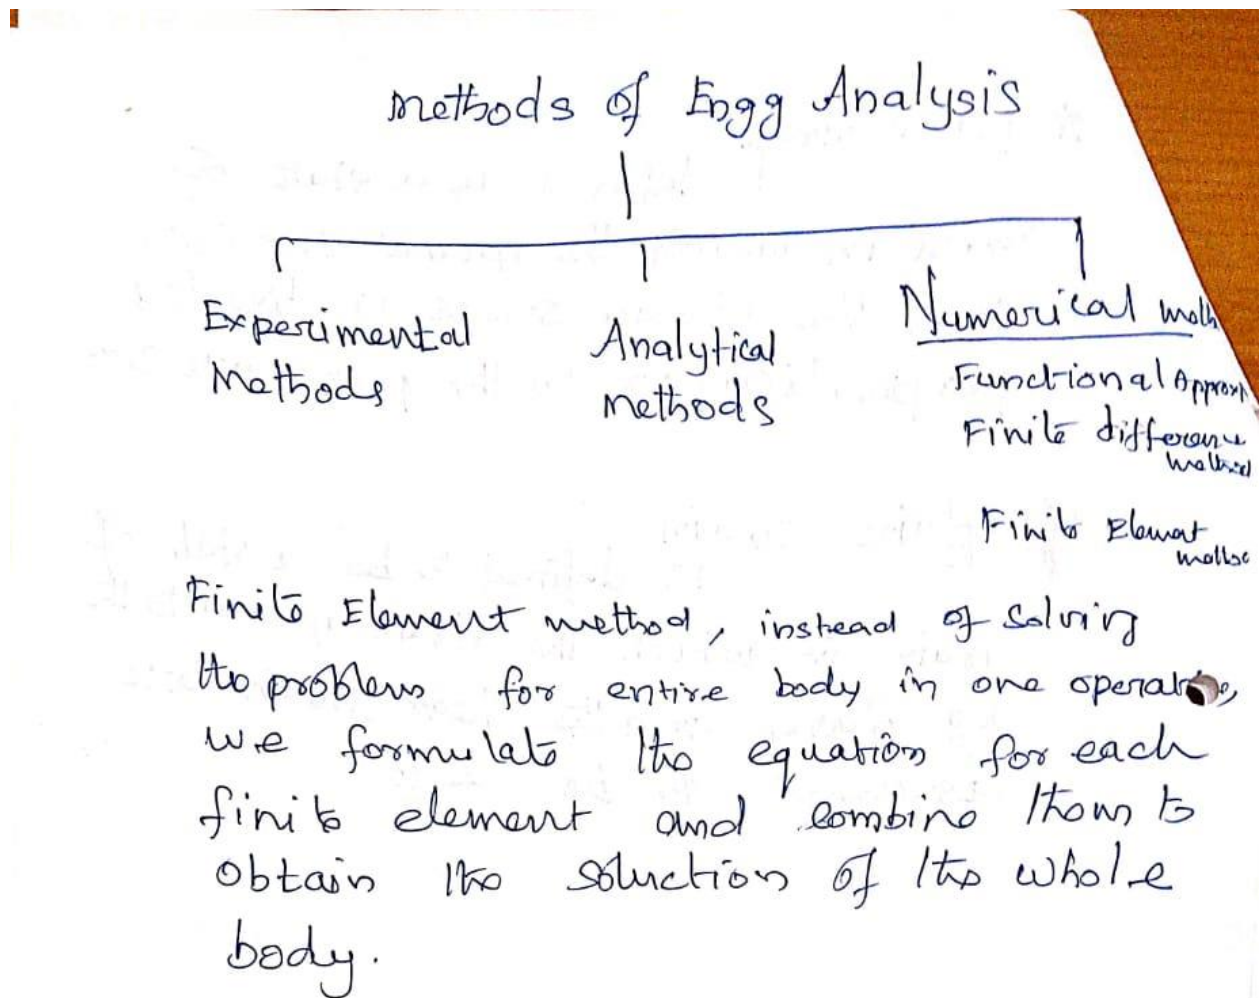 Methods of Engg Analysis
Experimental
Methods
Analytical
methods
Numerical
Functional Approx
Finite difference
method
Finite Element
Finite Element method, instead of solving
the problem for entire body in one
we formulate the equation for each
finite element and combine them to
obtain the soluction of the whole
body.